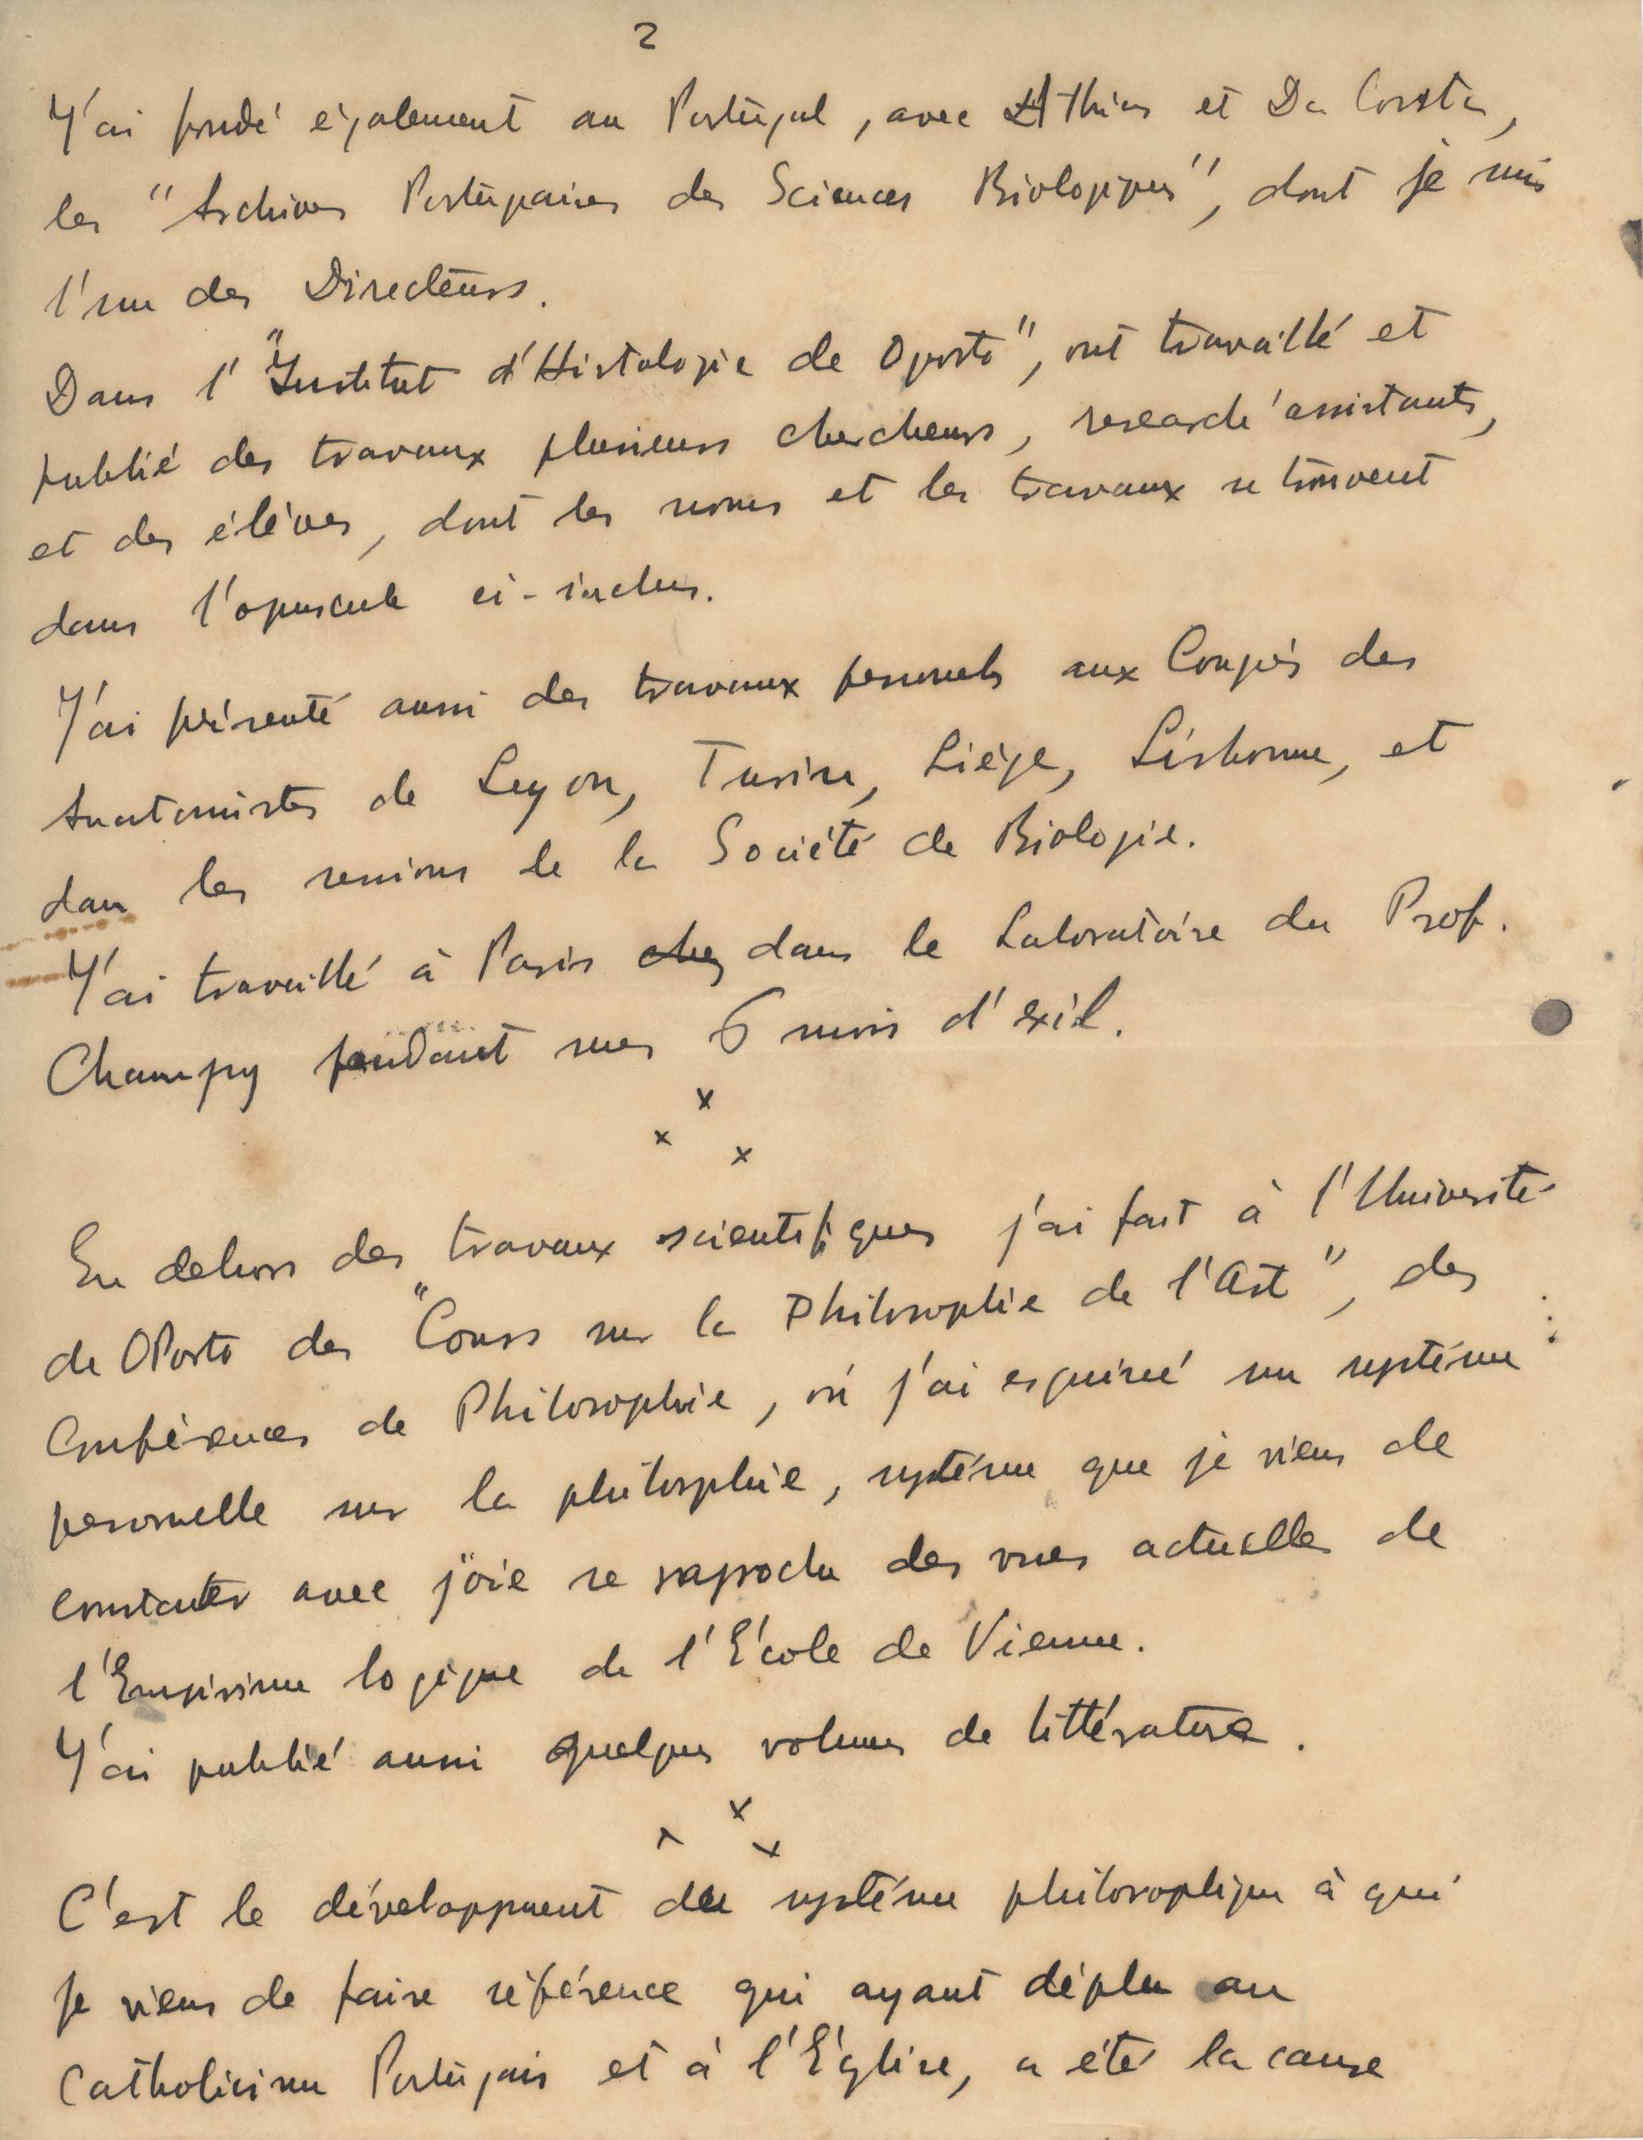 2
J'ai fondé également au Portugal, avec Athias et Da Costa,
les "Archives Portugaises des Sciences Biologiques", dont je suis
l'un des Directeurs.
Dans l'"Institut d'Histologie de Oporto", ont travaillé et
publié des travaux plusieurs chercheurs, research assistants,
et des élèves, dont les noms et les travaux se trouvent
dans l'opuscule ci-inclus.
J'ai présenté aussi des travaux personnels aux Congrès des
Anatomistes de Lyon, Turin, Liège, Lisbonne, et
dans les sessions de la Société de Biologie.
J'ai travaillé à Paris chez dans le Laboratoire du Prof.
Champy pendant mes 6 mois d'exil.
x
x x
En dehors des travaux scientifiques j'ai fait à l'Université
de OPorto des "Cours sur la Philosophie de l'Art", des
Conférences de Philosophie, où j'ai esquissé un systéme
personnelle sur la philosphie, systéme que je viens de
constater avec joie se raproche des vues actuelles de
l'Empirisme logique de l'École de Vienne.
J'ai publié aussi quelques volumes de littérature.
x
x x
C'est le développment du systéme philosophique à qui
je viens de faire référence qui ayant déplu au
Catholicisme Portugais et à l'Église, a été la cause